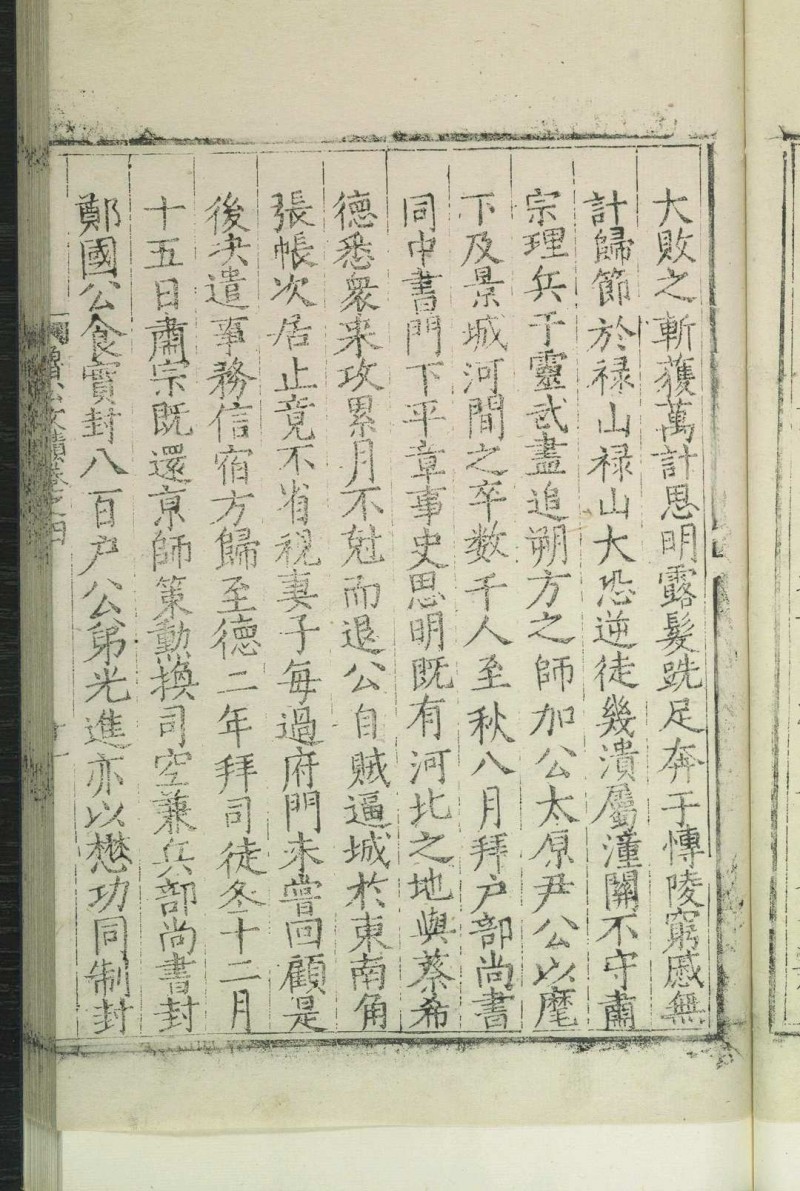 大敗之斬獲萬計思明露髮跣足奔于慱陵窮慼無
計歸節於禄山禄山大恐逆徒幾潰屬潼關不守肅
宗理兵于靈武盡追朔方之師加公太原尹公以麾
下及景城河間之卒数千人至秋八月拜户部尚書
同中書門下平章事史思明既有河北之地與蔡希
德悉衆来攻累月不尅而退公自賊逼城於東南角
張帳次居止竟不省視妻子每過府門未甞回顧是
後决遣事務信宿方歸至德二年拜司徒冬十二月
十五日肅宗既還京師策勳換司空兼兵部尚書封
鄭國公食實封八百户公弟光進亦以懋功同制封
魯公文 之四